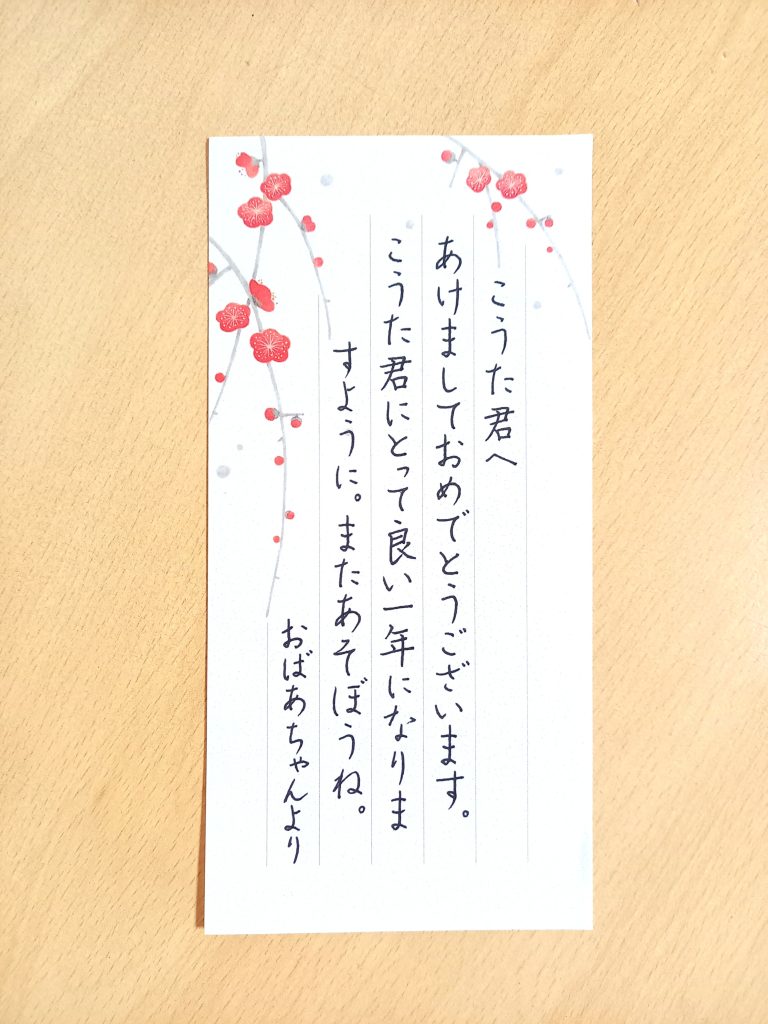 こうた君へ
あけましておめでとうございます。
こうた君にとって良い一年になりま
すように。またあそぼうね。
おばあちゃんより